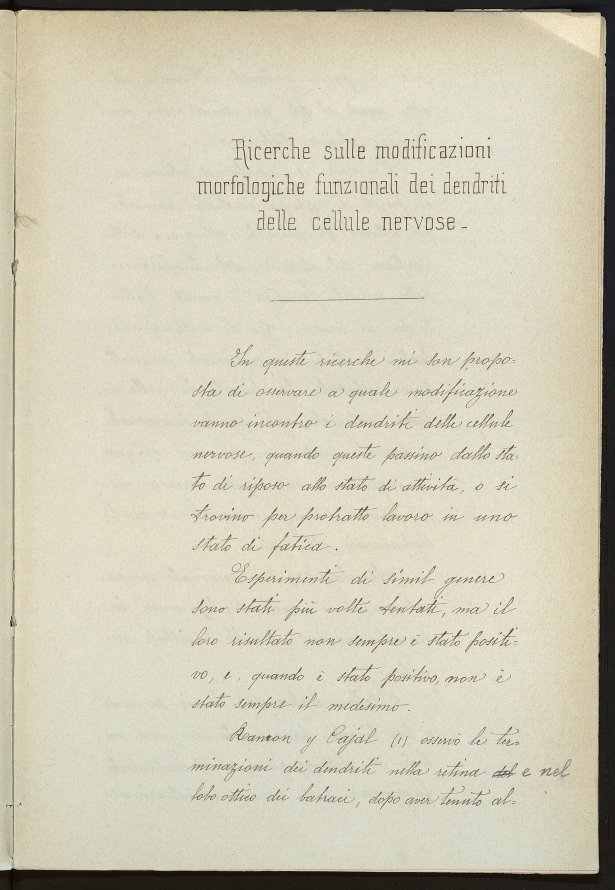 Ricerche sulle modificazioni
morfologiche funzionali dei dendriti
delle cellule nervose –
In queste ricerche mi son propo-
sta di osservare a quale modificazione
vanno incontro i dendriti delle cellule
nervose, quando queste passino dallo sta-
to di riposo allo stato di attività, o si
trovino per protratto lavoro in uno
stato di fatica.
Esperimenti di simil genere
sono stati più volte tentati, ma il
loro risultato non sempre è stato positi-
vo, e, quando è stato positivo, non è
stato sempre il medesimo.
Ramon y Cajal (1) osservò le ter-
minazioni dei dendriti nella retina del e nel
lobo ottico dei batraci, dopo aver tenuto al-